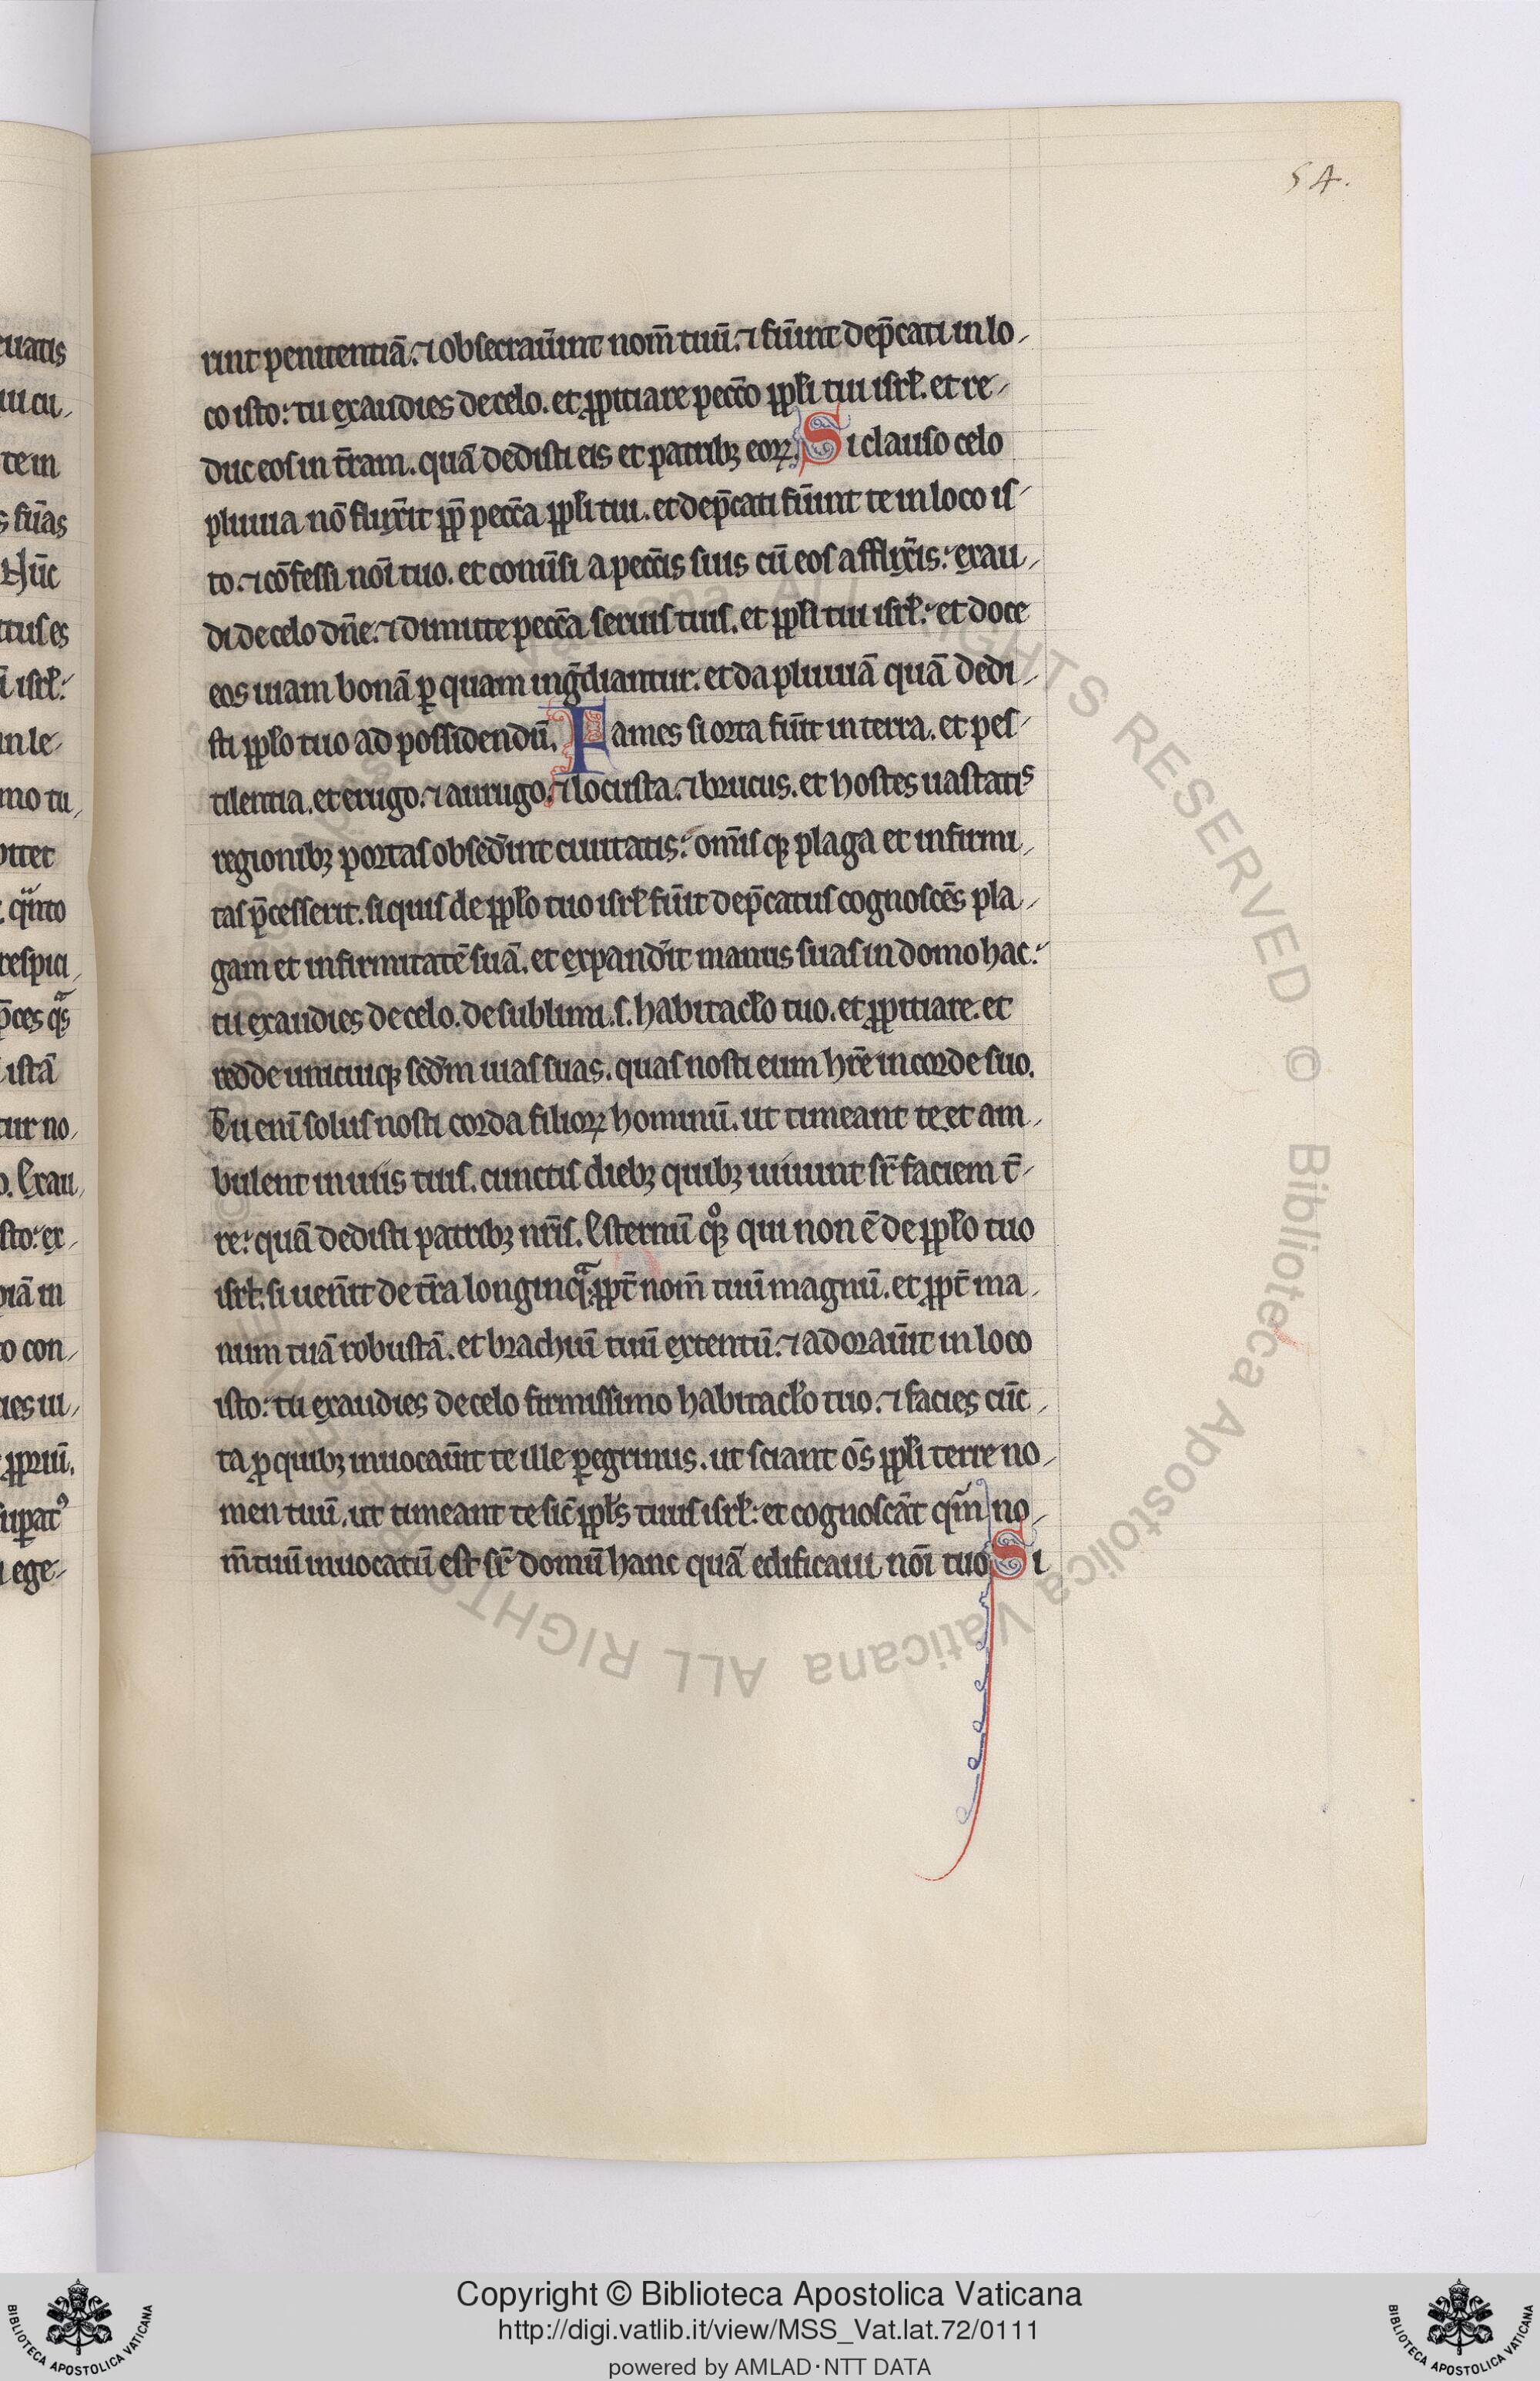 54.
rint penitentiã. ⁊ obsecrau̾int nom̃ tuũ. ⁊ fũint dep̃cati in lo-
co isto: tu exaudies de celo. et ꝓpitiare pecc̃o ppl̃i tui isrl̃. et re-
duc eos in t̃ram. quã dedisti eis et patribꝫ eoꝝ. Si clauso celo
pluuia nõ flux̃it pp̃ pecc̃a ppl̃i tui. et dep̃cati fũint te in loco is-
to. ⁊ cõfessi nõi tuo. et conũsi a pecc̃is suis cũ eos afflix̃is: exau-
di de celo dñe. ⁊ dimitte pecc̃a seruis tuis. et ppl̃i tui isrl̃: et doce
eos uiam bonã ꝑ quam ing̃diantur. et da pluuiã quã dedi-
sti ppl̃o tuo ad possidendũ. Fames si orta fũit in terra. et pes-
tilentia. et erugo. ⁊ aurugo. ⁊ locusta. ⁊ brucus. et hostes uastatis
regionibꝫ portas obsed̃int ciuitatis: om̃is qꝫ plaga et infirmi-
tas p̃cesserit. siquis de ppl̃o tuo isrl̃ fũit dep̃catus cognoscẽs pla-
gam et infirmitatẽ suã. et expand̾it manus suas in domo hac:
tu exaudies de celo. de sublimi .s. habitacl̃o tuo. et ꝓpitiare. et
redde unicuiqꝫ scd̃m uias suas. quas nosti eum hr̃e in corde suo.
Tu eni solus nosti corda filioꝝ hominũ. ut timeant te et am-
bulent in uiis tuis. cunctis diebꝫ quibꝫ uiuunt sr̃ faciem t̃-
re: quã dedisti patribꝫ nr̃is. Esternũ qꝫo qui non ẽ de ppl̃o tuo
isrl̃. si uen̾it de t̃ra longinqa: ꝓpt̃ nom̃ tuũ magnũ. et ꝓpt̃ ma-
num tuã robustã. et brachiũ tuũ extentũ. ⁊ adorau̾it in loco
isto: tu exaudies de celo firmissimo habitacl̃o tuo. ⁊ facies cũc-
ta ꝓ quibꝫ inuocau̾it te ille ꝑegrinus. ut sciant õs ppl̃i terre no-
men tuũ. ut timeant te sic̃ ppl̃s tuus isrl̃: et cognoscãt qm̃ no-
m̃ tuũ inuocatũ est sr̃ domũ hanc quã edificaui nõi tuo Si
Copyright © Biblioteca Apostolica Vaticana
http://digi.vatlib.it/view/MSS_Vat.lat.72/0111
powered by AMLAD·NTT DATA